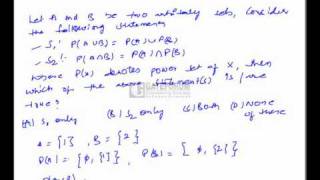 Let A and B be two arbitrary sets, consider
the following statements
S₁: P(A∪B) = P(A) ∪ P(B)
S₂: P(A∩B) = P(A) ∩ P(B)
where P(X) denotes power set of X, then
which of the above statement(s) is/are
true?
(A) S₁ only (B) S₂ only (C) Both (D) None
of these
A = {1}, B = {2}
P(A) = {ϕ, {1}}, P(B) = { ϕ, {2}}